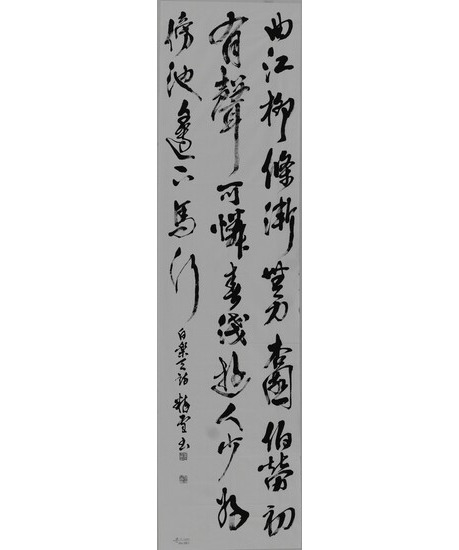 曲江柳條漸無力杏園伯勞初
有聲可憐春淺遊人少好
傍池邊下馬行
白樂天詩 書